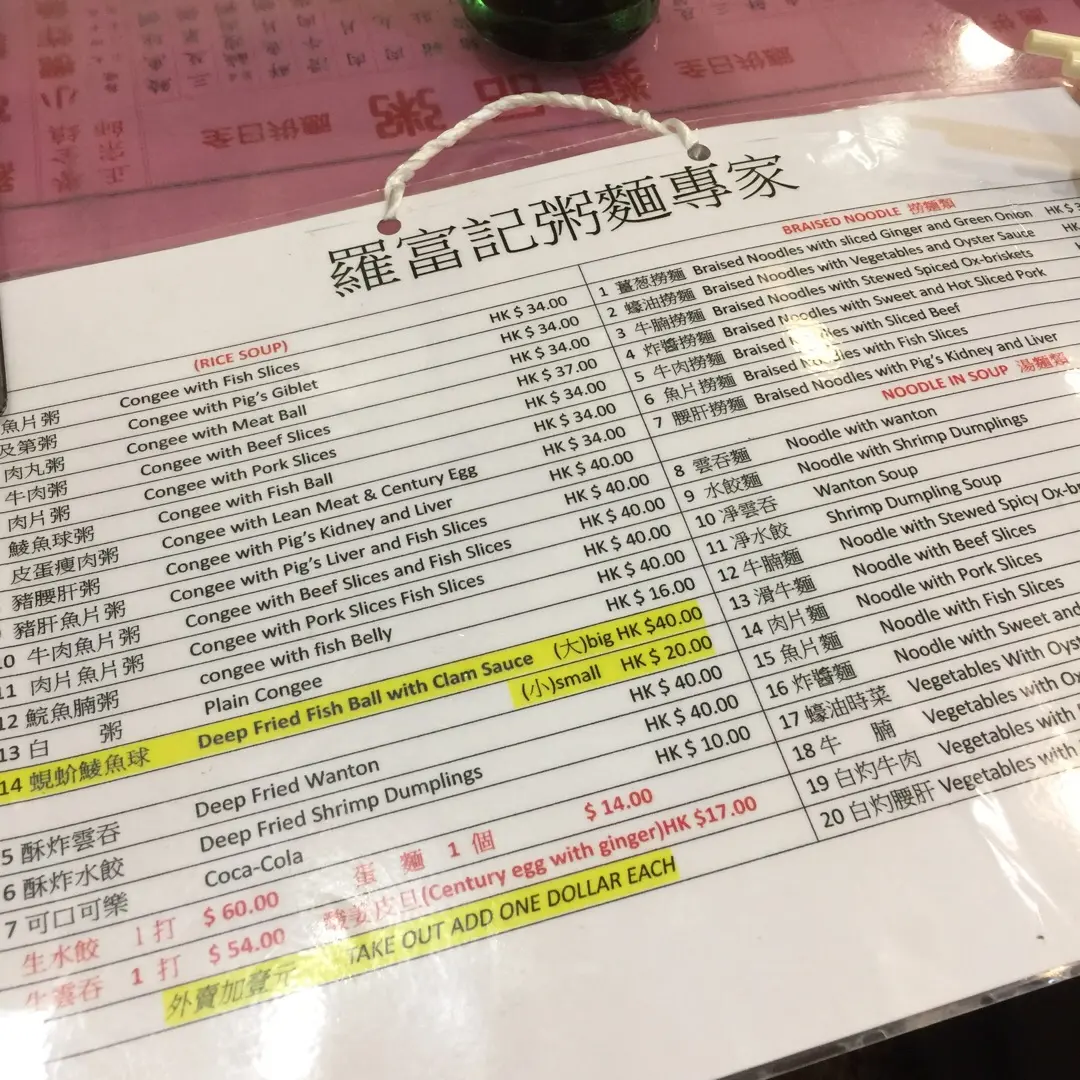 全日供應
粥品類
全日供應
羅富記粥麵專家
(RICE SOUP)
魚片粥 Congee with Fish Slices HK $ 34.00
及第粥 Congee with Pig's Giblet HK $ 34.00
肉丸粥 Congee with Meat Ball HK $ 34.00
牛肉粥 Congee with Beef Slices HK $ 37.00
肉片粥 Congee with Pork Slices HK $ 34.00
鯪魚球粥 Congee with Fish Ball HK $ 34.00
皮蛋瘦肉粥 Congee with Lean Meat & Century Egg HK $ 34.00
豬腰肝粥 Congee with Pig's Kidney and Liver HK $ 40.00
豬肝魚片粥 Congee with Pig's Liver and Fish Slices HK $ 40.00
10 牛肉魚片粥 Congee with Beef Slices and Fish Slices HK $ 40.00
11 肉片魚片粥 Congee with Pork Slices Fish Slices HK $ 40.00
12 鯇魚腩粥 congee with fish Belly HK $ 40.00
13 白 粥 Plain Congee HK $ 16.00
14 蜆蚧鯪魚球 Deep Fried Fish Ball with Clam Sauce (大)big HK $40.00
(小)small HK $ 20.00
5 酥炸雲吞 Deep Fried Wanton HK $ 40.00
6 酥炸水餃 Deep Fried Shrimp Dumplings HK $ 40.00
7 可口可樂 Coca-Cola HK $ 10.00
生水餃 1 打 $ 60.00 蛋 麵 1 個 $ 14.00
生雲吞 1 打 $ 54.00 酸姜皮旦(Century egg with ginger)HK $17.00
外賣加壹元 TAKE OUT ADD ONE DOLLAR EACH
BRAISED NOODLE 撈麵類
1 薑葱撈麵 Braised Noodles with sliced Ginger and Green Onion HK $
2 蠔油撈麵 Braised Noodles with Vegetables and Oyster Sauce HK
3 牛腩撈麵 Braised Noodles with Stewed Spiced Ox-briskets
4 炸醬撈麵 Braised Noodles with Sweet and Hot Sliced Pork
5 牛肉撈麵 Braised Noodles with Sliced Beef
6 魚片撈麵 Braised Noodles with Fish Slices
7 腰肝撈麵 Braised Noodles with Pig's Kidney and Liver
NOODLE IN SOUP 湯麵類
8 雲吞麵 Noodle with wanton
9 水餃麵 Noodle with Shrimp Dumplings
10 凈雲吞 Wanton Soup
11 凈水餃 Shrimp Dumpling Soup
12 牛腩麵 Noodle with Stewed Spicy Ox-b
13 滑牛麵 Noodle with Beef Slices
14 肉片麵 Noodle with Pork Slices
15 魚片麵 Noodle with Fish Slices
16 炸醬麵 Noodle with Sweet and
17 蠔油時菜 Vegetables With Oyst
18 牛 腩 Vegetables with Ox
19 白灼牛肉 Vegetables with
20 白灼腰肝 Vegetables with